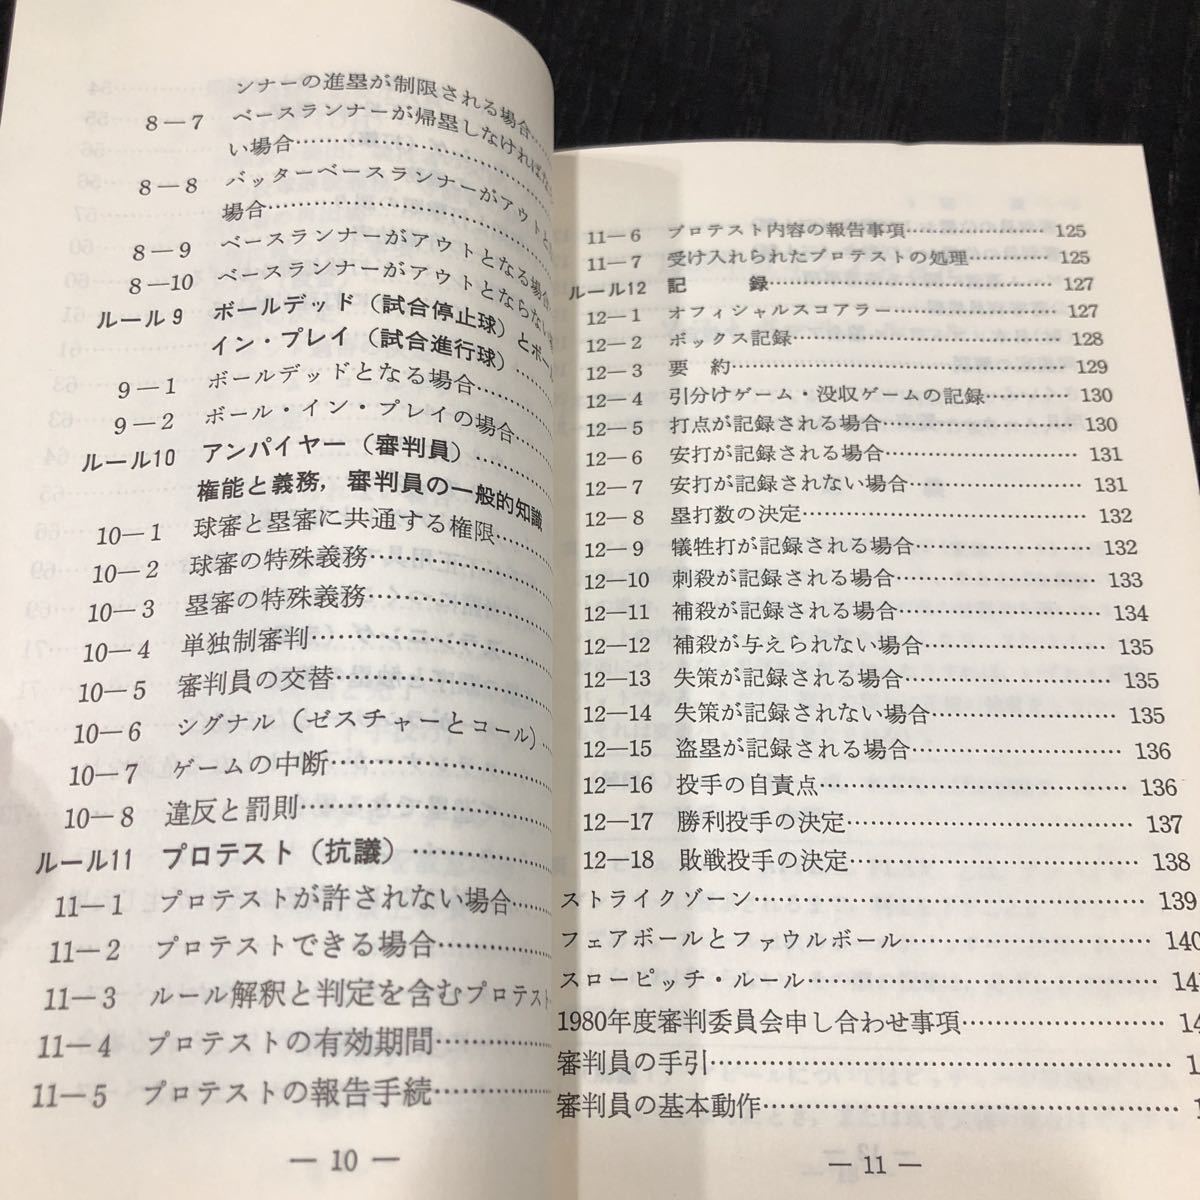 ンナーの進塁が制限される場合……
8—7 ベースランナーが帰塁しなければ
い場合……………………
8—8 バッターベースランナーがアウトと
場合……………………
8—9 ベースランナーがアウトとなる場合
8—10 ベースランナーがアウトとならない
ルール9 ボールデッド（試合停止球）とボー
イン・プレイ（試合進行球）……
9—1 ボールデッドとなる場合……
9—2 ボール・イン・プレイの場合……
ルール10 アンパイヤー（審判員）……
権能と義務，審判員の一般的知識
10—1 球審と塁審に共通する権限……
10—2 球審の特殊義務……
10—3 塁審の特殊義務……
10—4 単独制審判……
10—5 審判員の交替……
10—6 シグナル（ゼスチャーとコール）…
10—7 ゲームの中断……
10—8 違反と罰則……
ルール11 プロテスト（抗議）……
11—1 プロテストが許されない場合……
11—2 プロテストできる場合……
11—3 ルール解釈と判定を含むプロテスト
11—4 プロテストの有効期間……
11—5 プロテストの報告手続……
— 10 —
11—6 プロテスト内容の報告事項…………………125
11—7 受け入れられたプロテストの処理…………125
ルール12 記　　録……………………………………127
12—1 オフィシャルスコアラー……………………127
12—2 ボックス記録…………………………………128
12—3 要　約…………………………………………129
12—4 引分けゲーム・没収ゲームの記録…………130
12—5 打点が記録される場合………………………130
12—6 安打が記録される場合………………………131
12—7 安打が記録されない場合……………………131
12—8 塁打数の決定…………………………………132
12—9 犠牲打が記録される場合……………………132
12—10 刺殺が記録される場合……………………133
12—11 補殺が記録される場合……………………134
12—12 補殺が与えられない場合…………………135
12—13 失策が記録される場合……………………135
12—14 失策が記録されない場合…………………135
12—15 盗塁が記録される場合……………………136
12—16 投手の自責点………………………………136
12—17 勝利投手の決定……………………………137
12—18 敗戦投手の決定……………………………138
ストライクゾーン……………………………………139
フェアボールとファウルボール……………………140
スローピッチ・ルール………………………………14
1980年度審判委員会申し合わせ事項………………14
審判員の手引…………………………………………1
審判員の基本動作……………………………………1
— 11 —